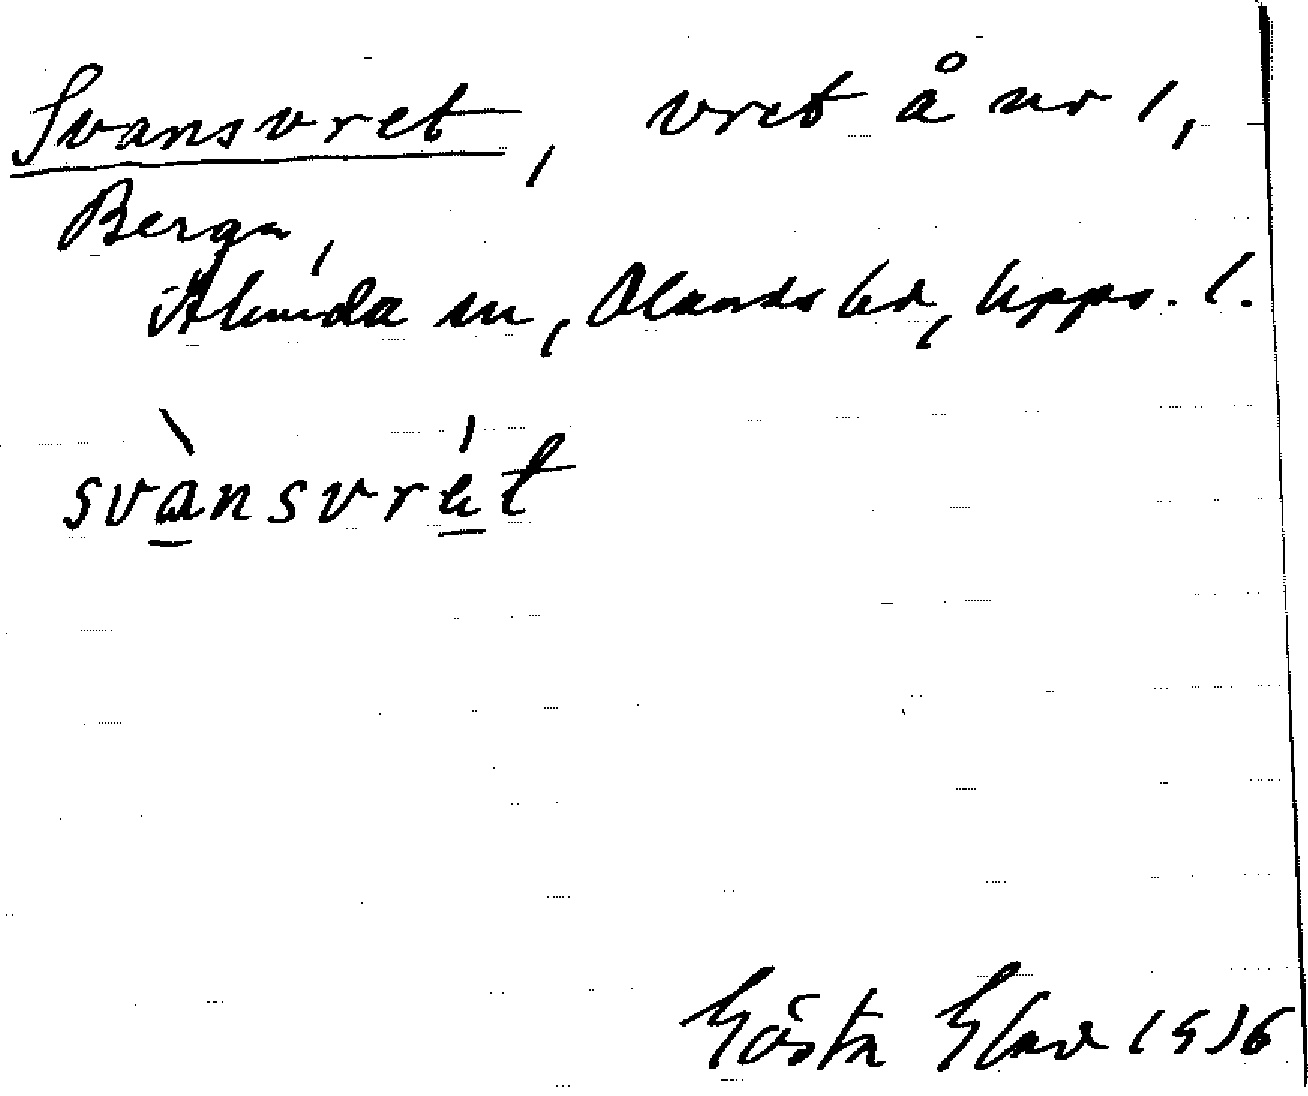 Svansvret, vret å nr 1,
Berga,
Alunda sn, Olands hd, Upps. l.
svànsvrét
Gösta